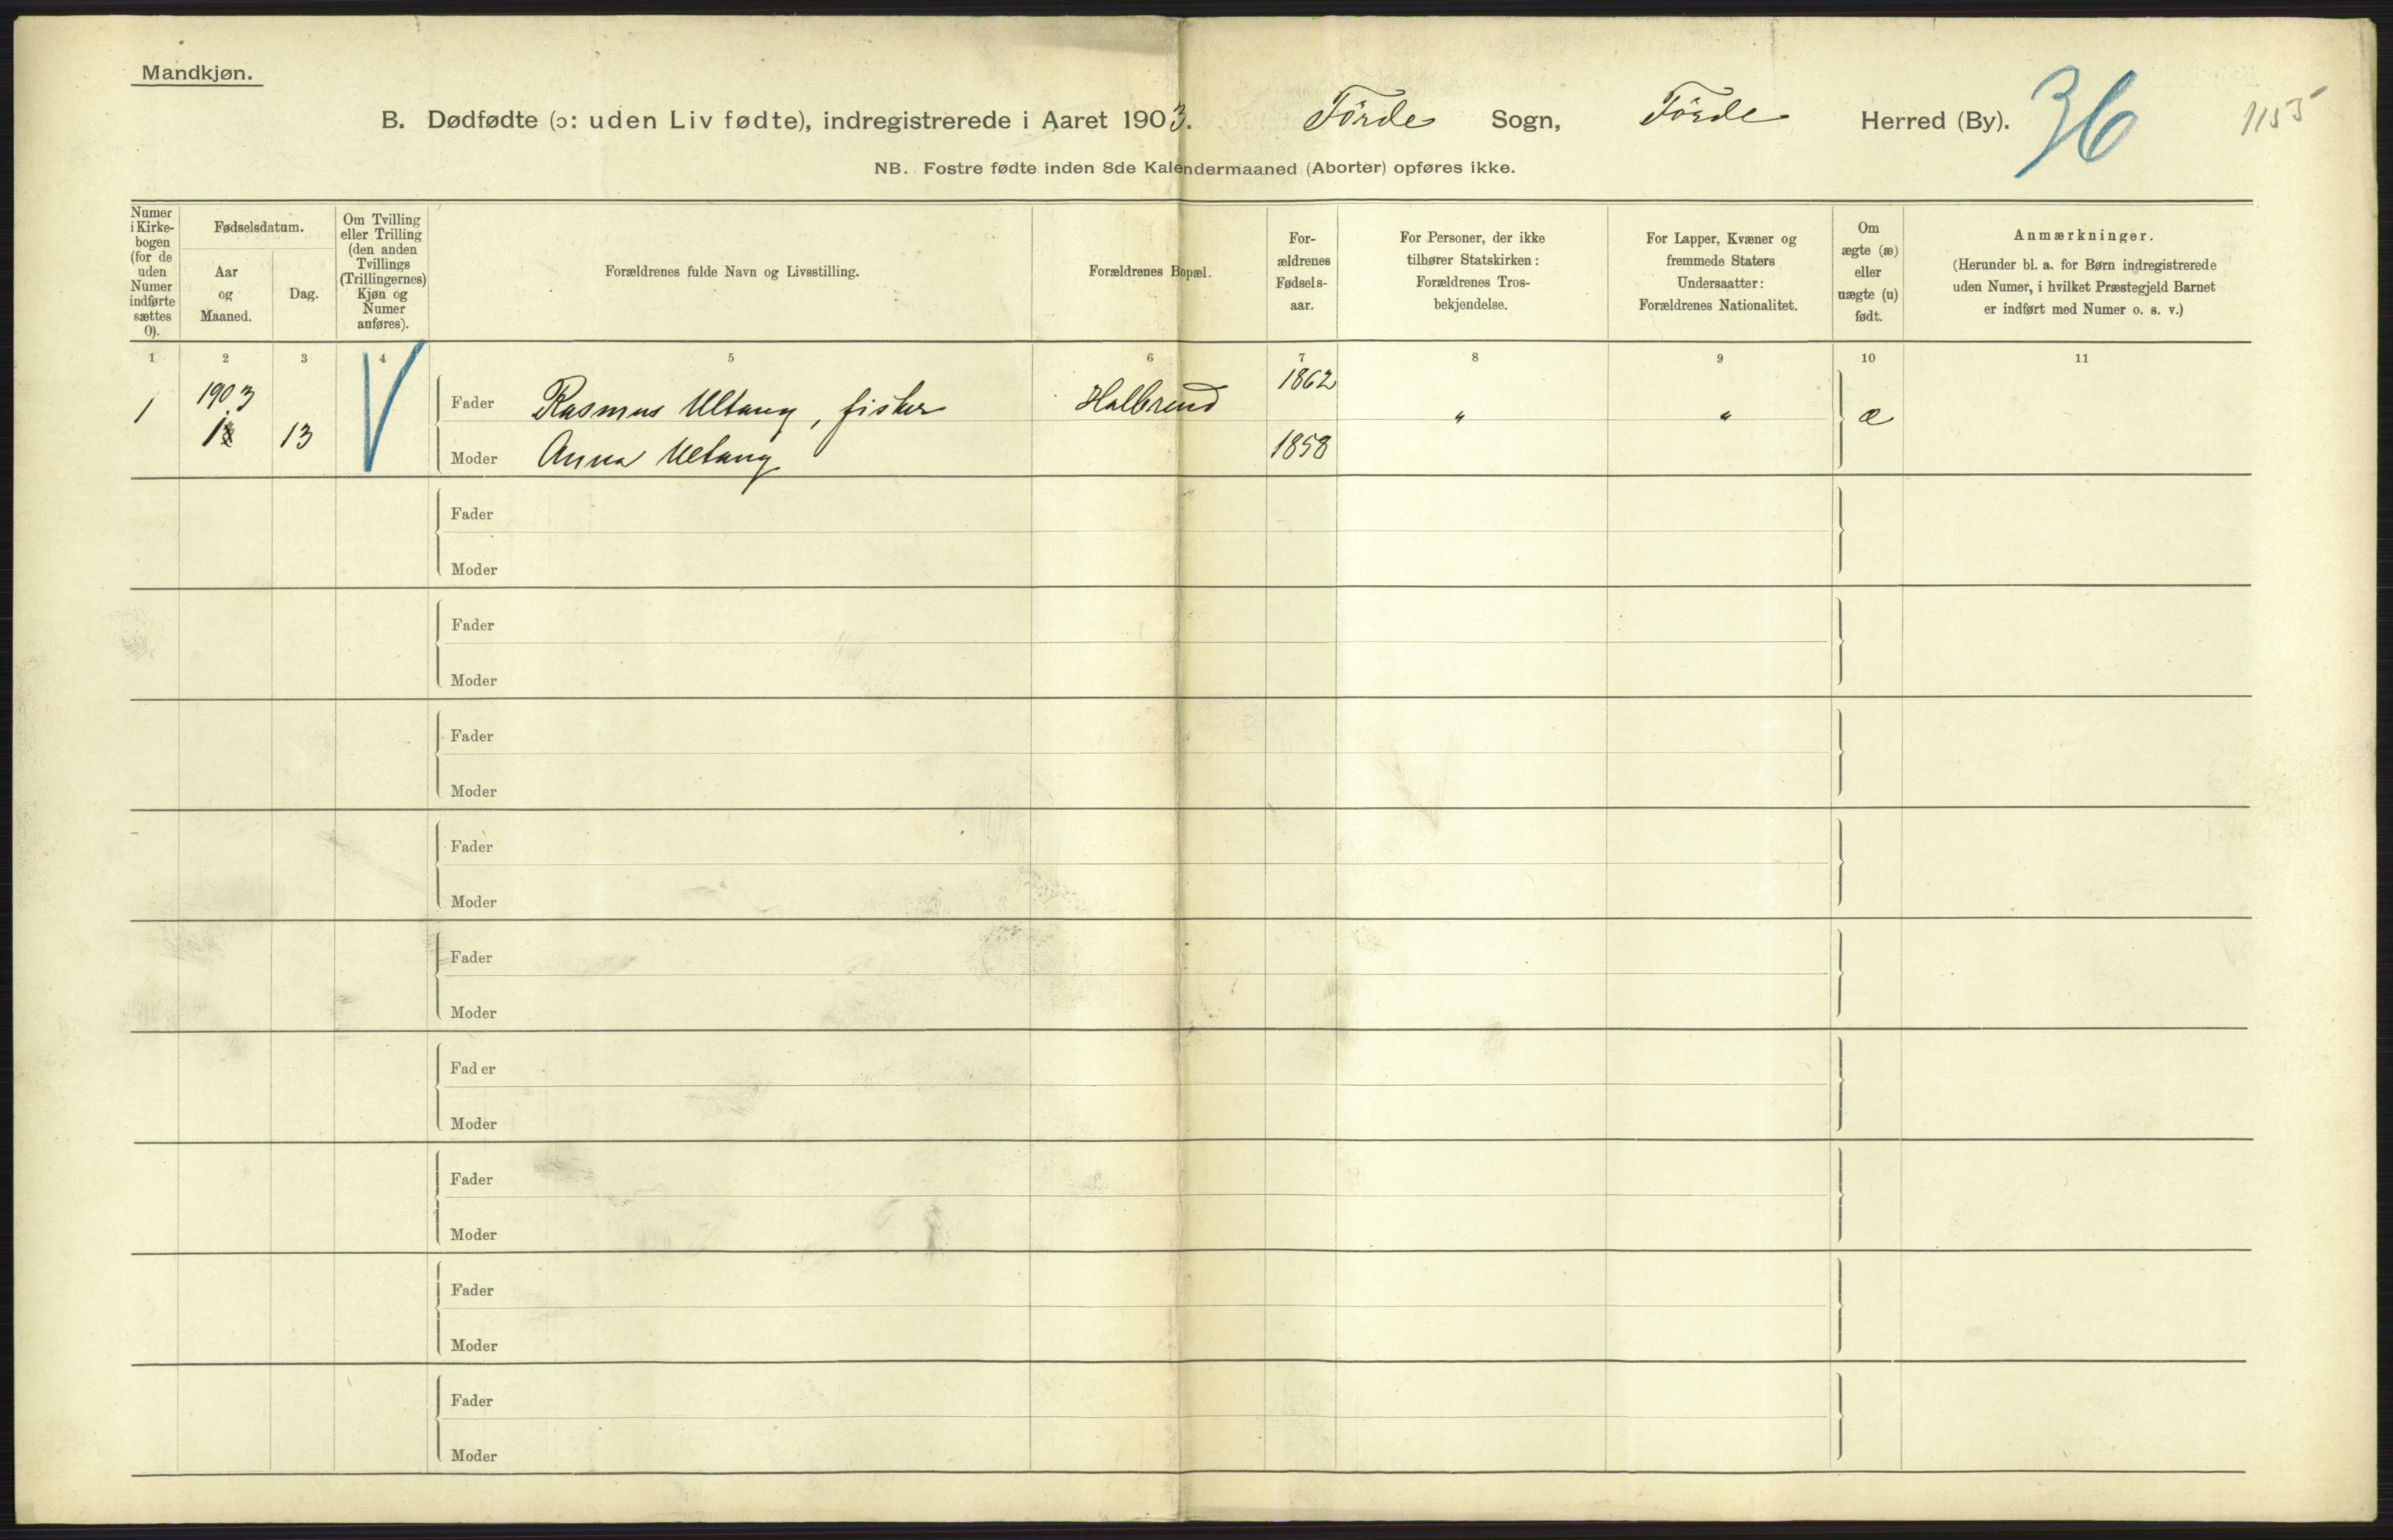 Mandkjøn.
B. Dødfødte (ɔ: uden Liv fødte), indregistrerede i Aaret 1903. Förde Sogn, Förde Herred (By). 36 1155
NB. Fostre fødte inden 8de Kalendermaaned (Aborter) opføres ikke.
Numer i Kirke-bogen (for de uden Numer indførte sættes 0).
Fødselsdatum.
Aar og Maaned.
Dag.
Om Tvilling eller Trilling (den anden Tvillings (Trillingernes) Kjøn og Numer anføres).
Forældrenes fulde Navn og Livsstilling.
Forældrenes Bopæl.
For-ældrenes Fødsels-aar.
For Personer, der ikke tilhører Statskirken: Forældrenes Tros-bekjendelse.
For Lapper, Kvæner og fremmede Staters Undersaatter: Forældrenes Nationalitet.
Om ægte (æ) eller uægte (u) født.
Anmærkninger.
(Herunder bl. a. for Børn indregistrerede uden Numer, i hvilket Præstegjeld Barnet er indført med Numer o. s. v.)
1 2 3 4 5 6 7 8 9 10 11
1 1903 13 Fader Rasmus Ultang, fisker Halbrend 1862 " " æ
Moder Anna Ultang 1858
Fader
Moder
Fader
Moder
Fader
Moder
Fader
Moder
Fader
Moder
Fader
Moder
Fader
Moder
Fader
Moder
Fader
Moder